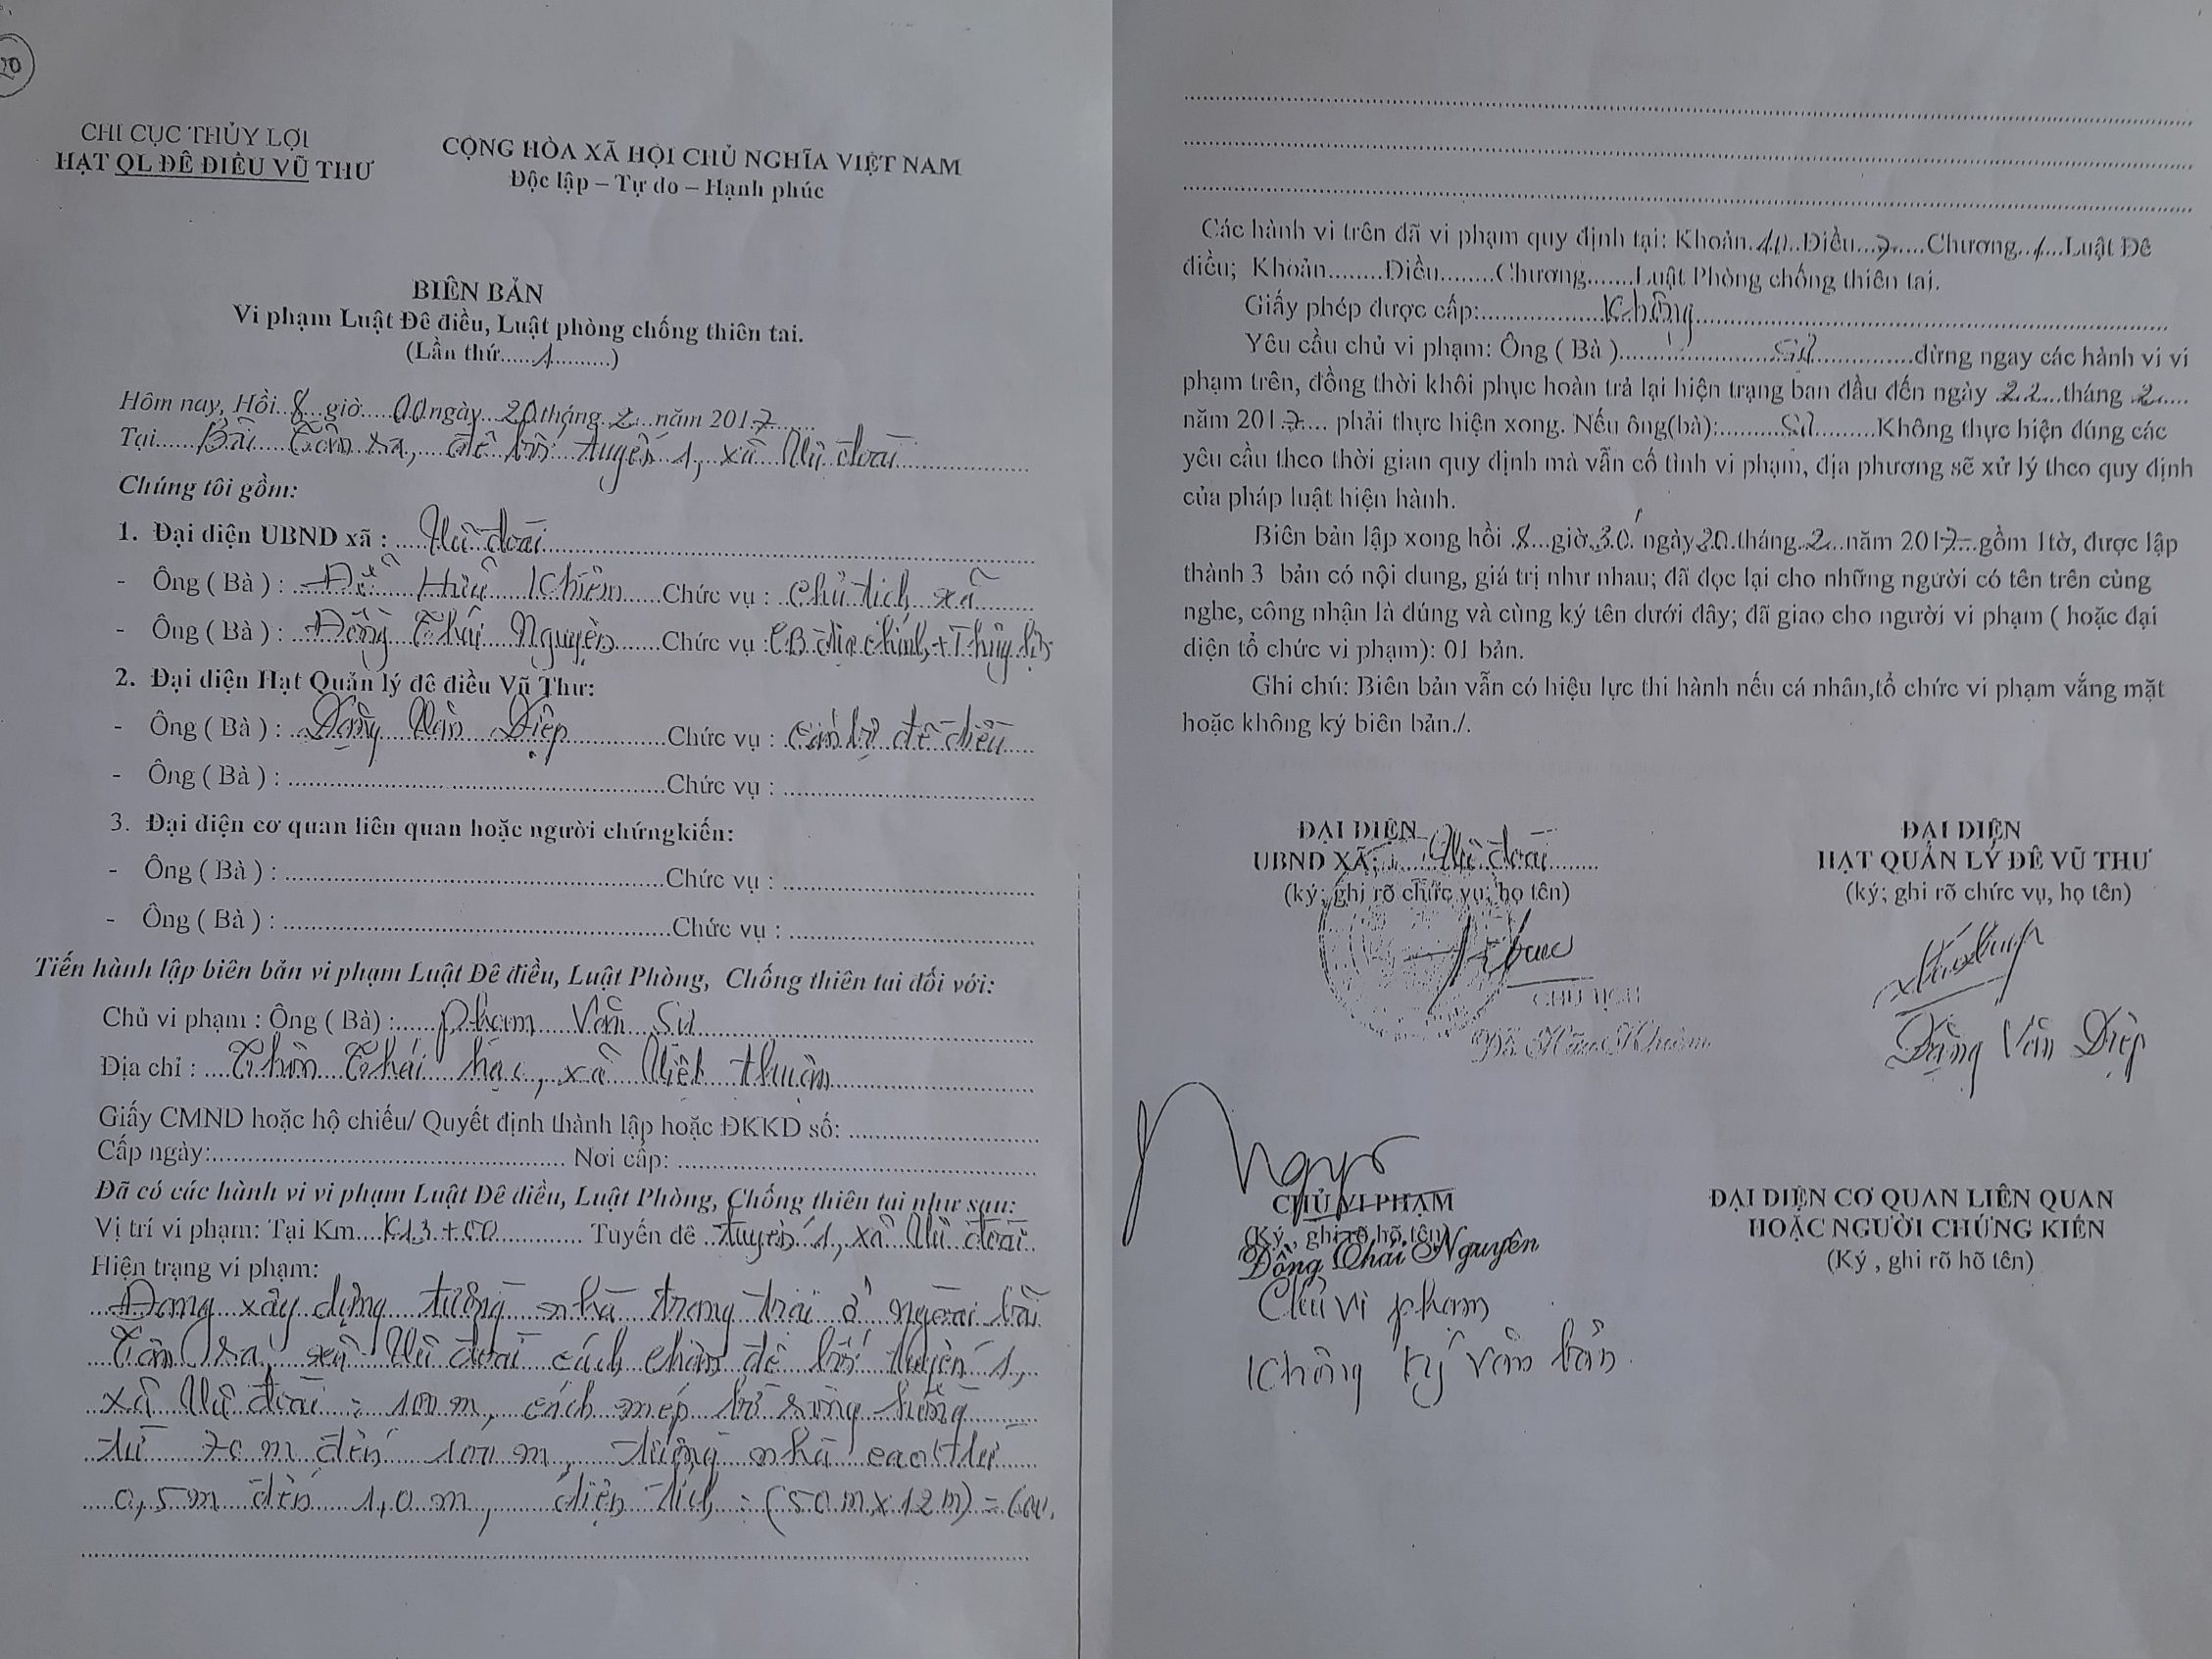 CHI CỤC THỦY LỢI
HẠT QL ĐÊ ĐIỀU VŨ THƯ
CỘNG HÒA XÃ HỘI CHỦ NGHĨA VIỆT NAM
Độc lập – Tự do – Hạnh phúc
BIÊN BẢN
Vi phạm Luật Đê điều, Luật phòng chống thiên tai.
(Lần thứ......1..........)
Hôm nay, Hồi..8...giờ.....00ngày...20tháng..2...năm 2017.......
Tại......Bãi Tân ...., đê bối tuyến 1, xã Vũ đoài
Chúng tôi gồm:
1. Đại diện UBND xã : ....Vũ đoài
- Ông ( Bà ) : Đỗ Hữu Khiêm......Chức vụ : chủ tịch xã
- Ông ( Bà ) : Đồng Thái Nguyên.......Chức vụ : CB địa chính + Thủy lợi
2. Đại diện Hạt Quản lý đê điều Vũ Thư:
- Ông ( Bà ) : Đặng Văn Điệp..........Chức vụ : Cán bộ đê điều
- Ông ( Bà ) : ..........Chức vụ : ..........
3. Đại diện cơ quan liên quan hoặc người chứngkiến:
- Ông ( Bà ) : ..........Chức vụ : ..........
- Ông ( Bà ) : ..........Chức vụ : ..........
Tiến hành lập biên bản vi phạm Luật Đê điều, Luật Phòng, Chống thiên tai đối với:
Chủ vi phạm : Ông ( Bà) :.....phạm Văn Sử
Địa chỉ : ....Thôn Thái hạc, xã Việt thuận
Giấy CMND hoặc hộ chiếu/ Quyết định thành lập hoặc ĐKKD số: ..........
Cấp ngày:.......... Nơi cấp: ..........
Đã có các hành vi vi phạm Luật Đê điều, Luật Phòng, Chống thiên tai như sau:
Vị trí vi phạm: Tại Km....K13+00............ Tuyến đê ..tuyến 1, xã Vũ đoài.
Hiện trạng vi phạm:
Đang xây dựng tường nhà trang trại ở ngoài bãi
Tân ...., xã Vũ đoài cách chân đê bối tuyến 1,
xã Vũ đoài = 100 m, cách mép bờ sông Hồng
từ 70 m đến 100 m, tường nhà cao từ
0,5m đến 1,0 m, diện tích = (50 m x 12 m) =
Các hành vi trên đã vi phạm quy định tại: Khoản..10...Điều...7.....Chương..1....Luật Đê
điều; Khoản........Điều........Chương.......Luật Phòng chống thiên tai.
Giấy phép được cấp:..................Không..........
Yêu cầu chủ vi phạm: Ông ( Bà )..........Sử...............dừng ngay các hành vi vi
phạm trên, đồng thời khôi phục hoàn trả lại hiện trạng ban đầu đến ngày .22....tháng .2.....
năm 2017.... phải thực hiện xong. Nếu ông(bà):.........Sử.........Không thực hiện đúng các
yêu cầu theo thời gian quy định mà vẫn cố tình vi phạm, địa phương sẽ xử lý theo quy định
của pháp luật hiện hành.
Biên bản lập xong hồi .8...giờ.30.' ngày20.tháng..2...năm 2017...gồm 1tờ, được lập
thành 3 bản có nội dung, giá trị như nhau; đã đọc lại cho những người có tên trên cùng
nghe, công nhận là đúng và cùng ký tên dưới đây; đã giao cho người vi phạm ( hoặc đại
diện tổ chức vi phạm): 01 bản.
Ghi chú: Biên bản vẫn có hiệu lực thi hành nếu cá nhân,tổ chức vi phạm vắng mặt
hoặc không ký biên bản./.
ĐẠI DIỆN
UBND XÃ:......Vũ đoài........
(ký; ghi rõ chức vụ, họ tên)
CHỦ TỊCH
Đỗ Hữu Khiêm
ĐẠI DIỆN
HẠT QUẢN LÝ ĐÊ VŨ THƯ
(ký; ghi rõ chức vụ, họ tên)
Đặng Văn Điệp
CHỦ VI PHẠM
(Ký , ghi rõ hõ tên)
Đồng Thái Nguyên
Chủ vi phạm
Không ký văn bản.
ĐẠI DIỆN CƠ QUAN LIÊN QUAN
HOẶC NGƯỜI CHỨNG KIẾN
(Ký , ghi rõ hõ tên)